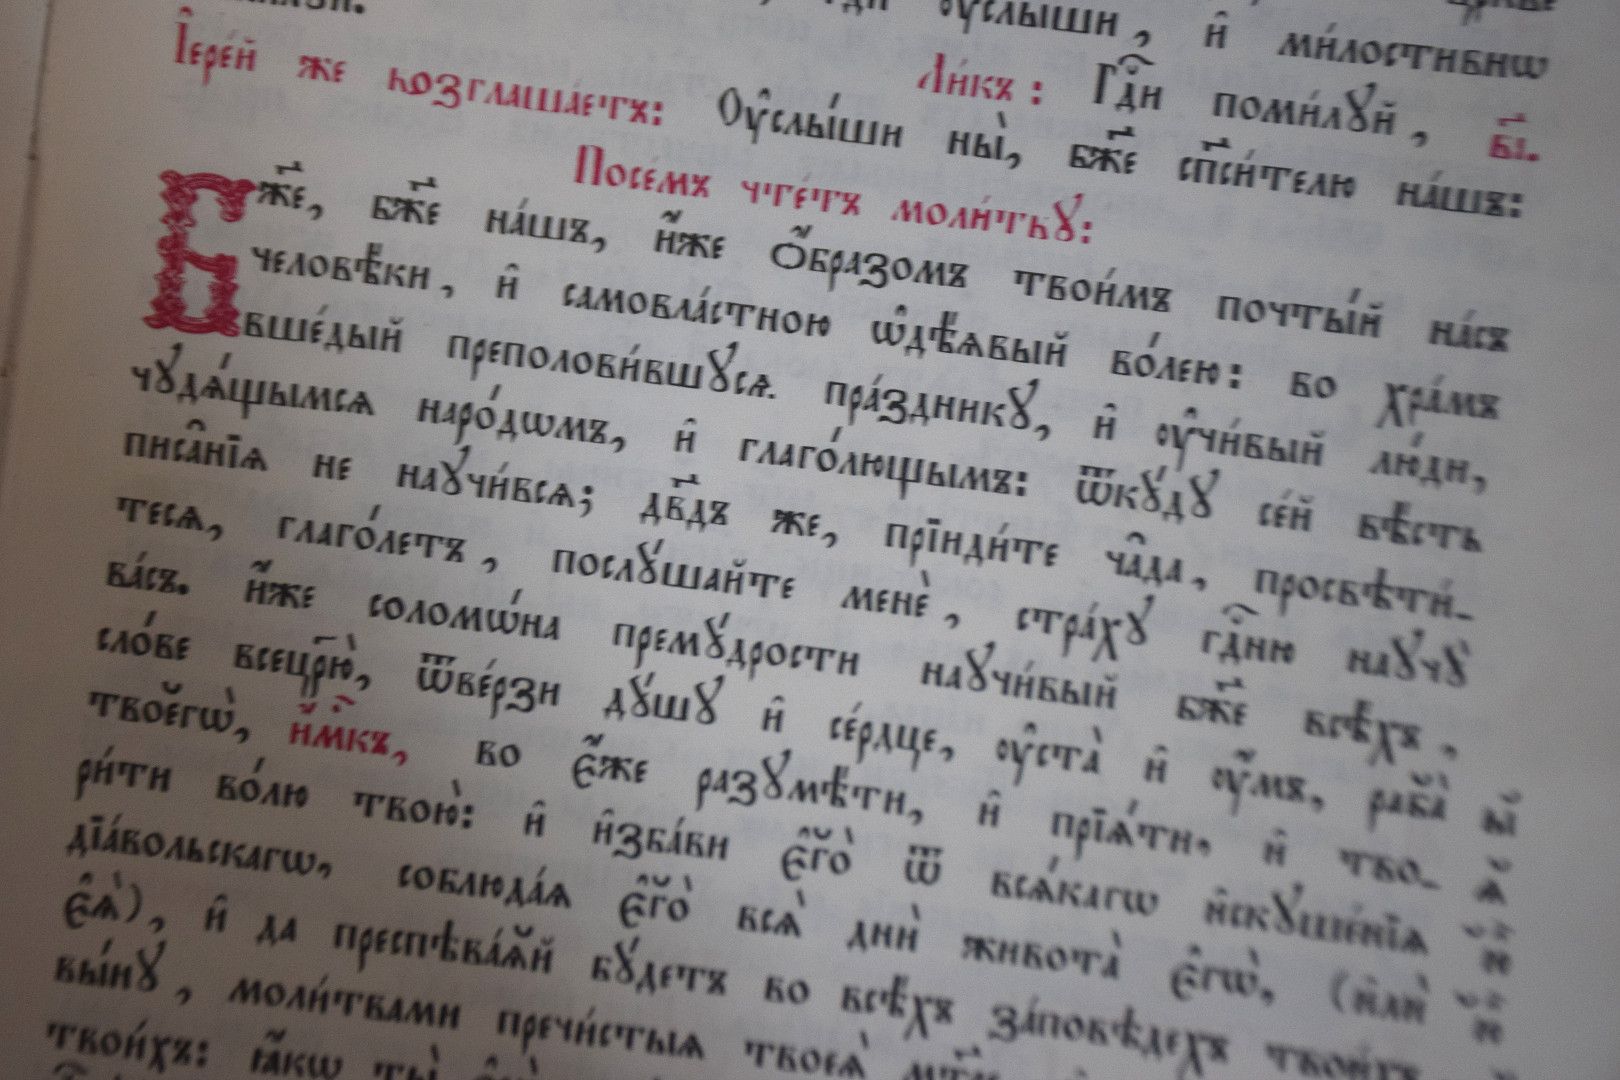 ᲂу҆слы́ши, и҆ ми́лостивнѡ
Ли́къ: Гдⷭ҇и поми́лꙋй, в҃і.
І҆ере́й же возглаша́етъ: Оу҆слы́ши ны̀, бж҃е сп҃си́телю на́шъ:
Посе́мъ чте́тъ моли́твꙋ:
Бж҃е, бж҃е на́шъ, и҆́же ѻ҆́бразомъ твои́мъ почты́й на́съ
человѣ́ки, и҆ самовла́стною ѡ҆дѣ́ѧвый во́лею: во хра́мъ
вше́дый преполови́вшꙋсѧ пра́здникꙋ, и҆ ᲂу҆чи́вый лю́ди,
чꙋдѧ́щымсѧ наро́дѡмъ, и҆ глаго́лющымъ: ѿкꙋ́дꙋ се́й вѣ́сть
писа̑нїѧ не наꙋчи́всѧ; дв҃дъ же, прїиди́те ча̑да, просвѣти́-
тесѧ, глаго́летъ, послꙋ́шайте менѐ, стра́хꙋ гдⷭ҇ню наꙋчꙋ̀
ва́съ. и҆́же соломѡ́на премꙋ́дрости наꙋчи́вый бж҃е всѣ́хъ,
сло́ве всецр҃ю̀, ѿве́рзи дꙋ́шꙋ и҆ се́рдце, ᲂу҆ста̀ и҆ ᲂу҆́мъ, раба̀
твоегѡ̀, и҆́м҃къ, во є҆́же разꙋмѣ́ти, и҆ прїѧ́ти, и҆ тво-
ри́ти во́лю твою̀: и҆ и҆зба́ви є҆го̀ ѿ всѧ́кагѡ и҆скꙋше́нїѧ
дїа́вольскагѡ, соблюда́ѧ є҆го̀ всѧ̀ дни̑ живота̀ є҆гѡ̀, (и҆лѝ
є҆ѧ̀), и҆ да преспѣва́ѧй бꙋ́детъ во всѣ́хъ за́повѣдехъ твои́хъ
вы́нꙋ, моли́твами пречи́стыѧ твоеѧ̀
твои́хъ: ꙗ҆́кѡ ты̀